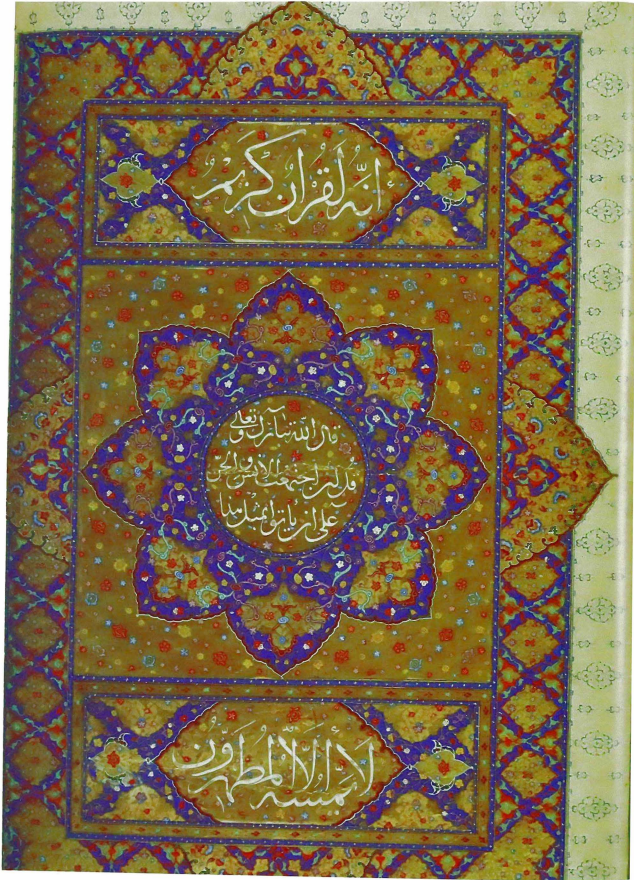 إنّه لقرآن كريم
قال الله تبارك وتعالى
قل لئن اجتمعت الإنس والجن
على أن يأتوا بمثل هذا
لا يمسه إلا المطهرون